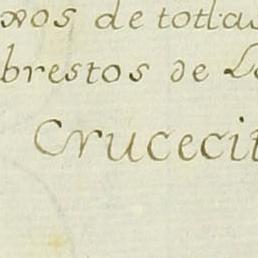 xos de totlas
brestos de L
Crucecit